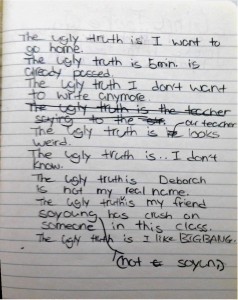 The ugly truth is I want to
go home.
The ugly truth is 5min. is
already passed.
The ugly truth I don't want
to write anymore.
The ugly truth is the teacher
saying to the
our teacher
The ugly truth is looks
weird.
The ugly truth is.. I don't
know.
The ugly truth is Deborah
is not my real name.
The ugly truth is my friend
soyoung has crush on
someone in this class.
The ugly truth is I like BIGBANG.
(not soyoung)